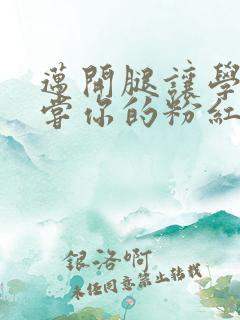 邁開腿讓學
嘗你的粉紅
銀洛啊
未經同意禁止轉載